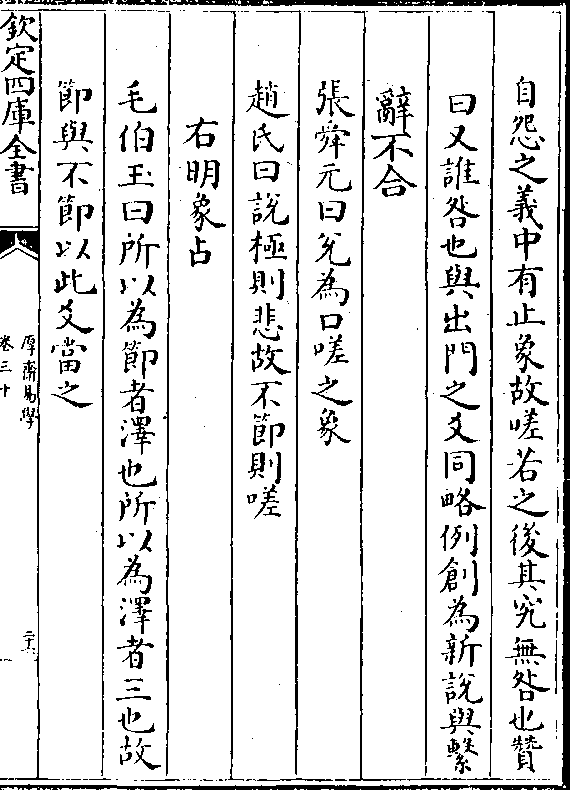 自怨之義中有止象故嗟若之後其究無咎也贊
曰又誰咎也與出門之爻同略例創為新說與繫
辭不合
張舜元曰兊為口嗟之象
趙氏曰說極則悲故不節則嗟
右明象占
毛伯玉曰所以為節者澤也所以為澤者三也故
節與不節以此爻當之
欽定四庫全書
厚齋易學
卷三十